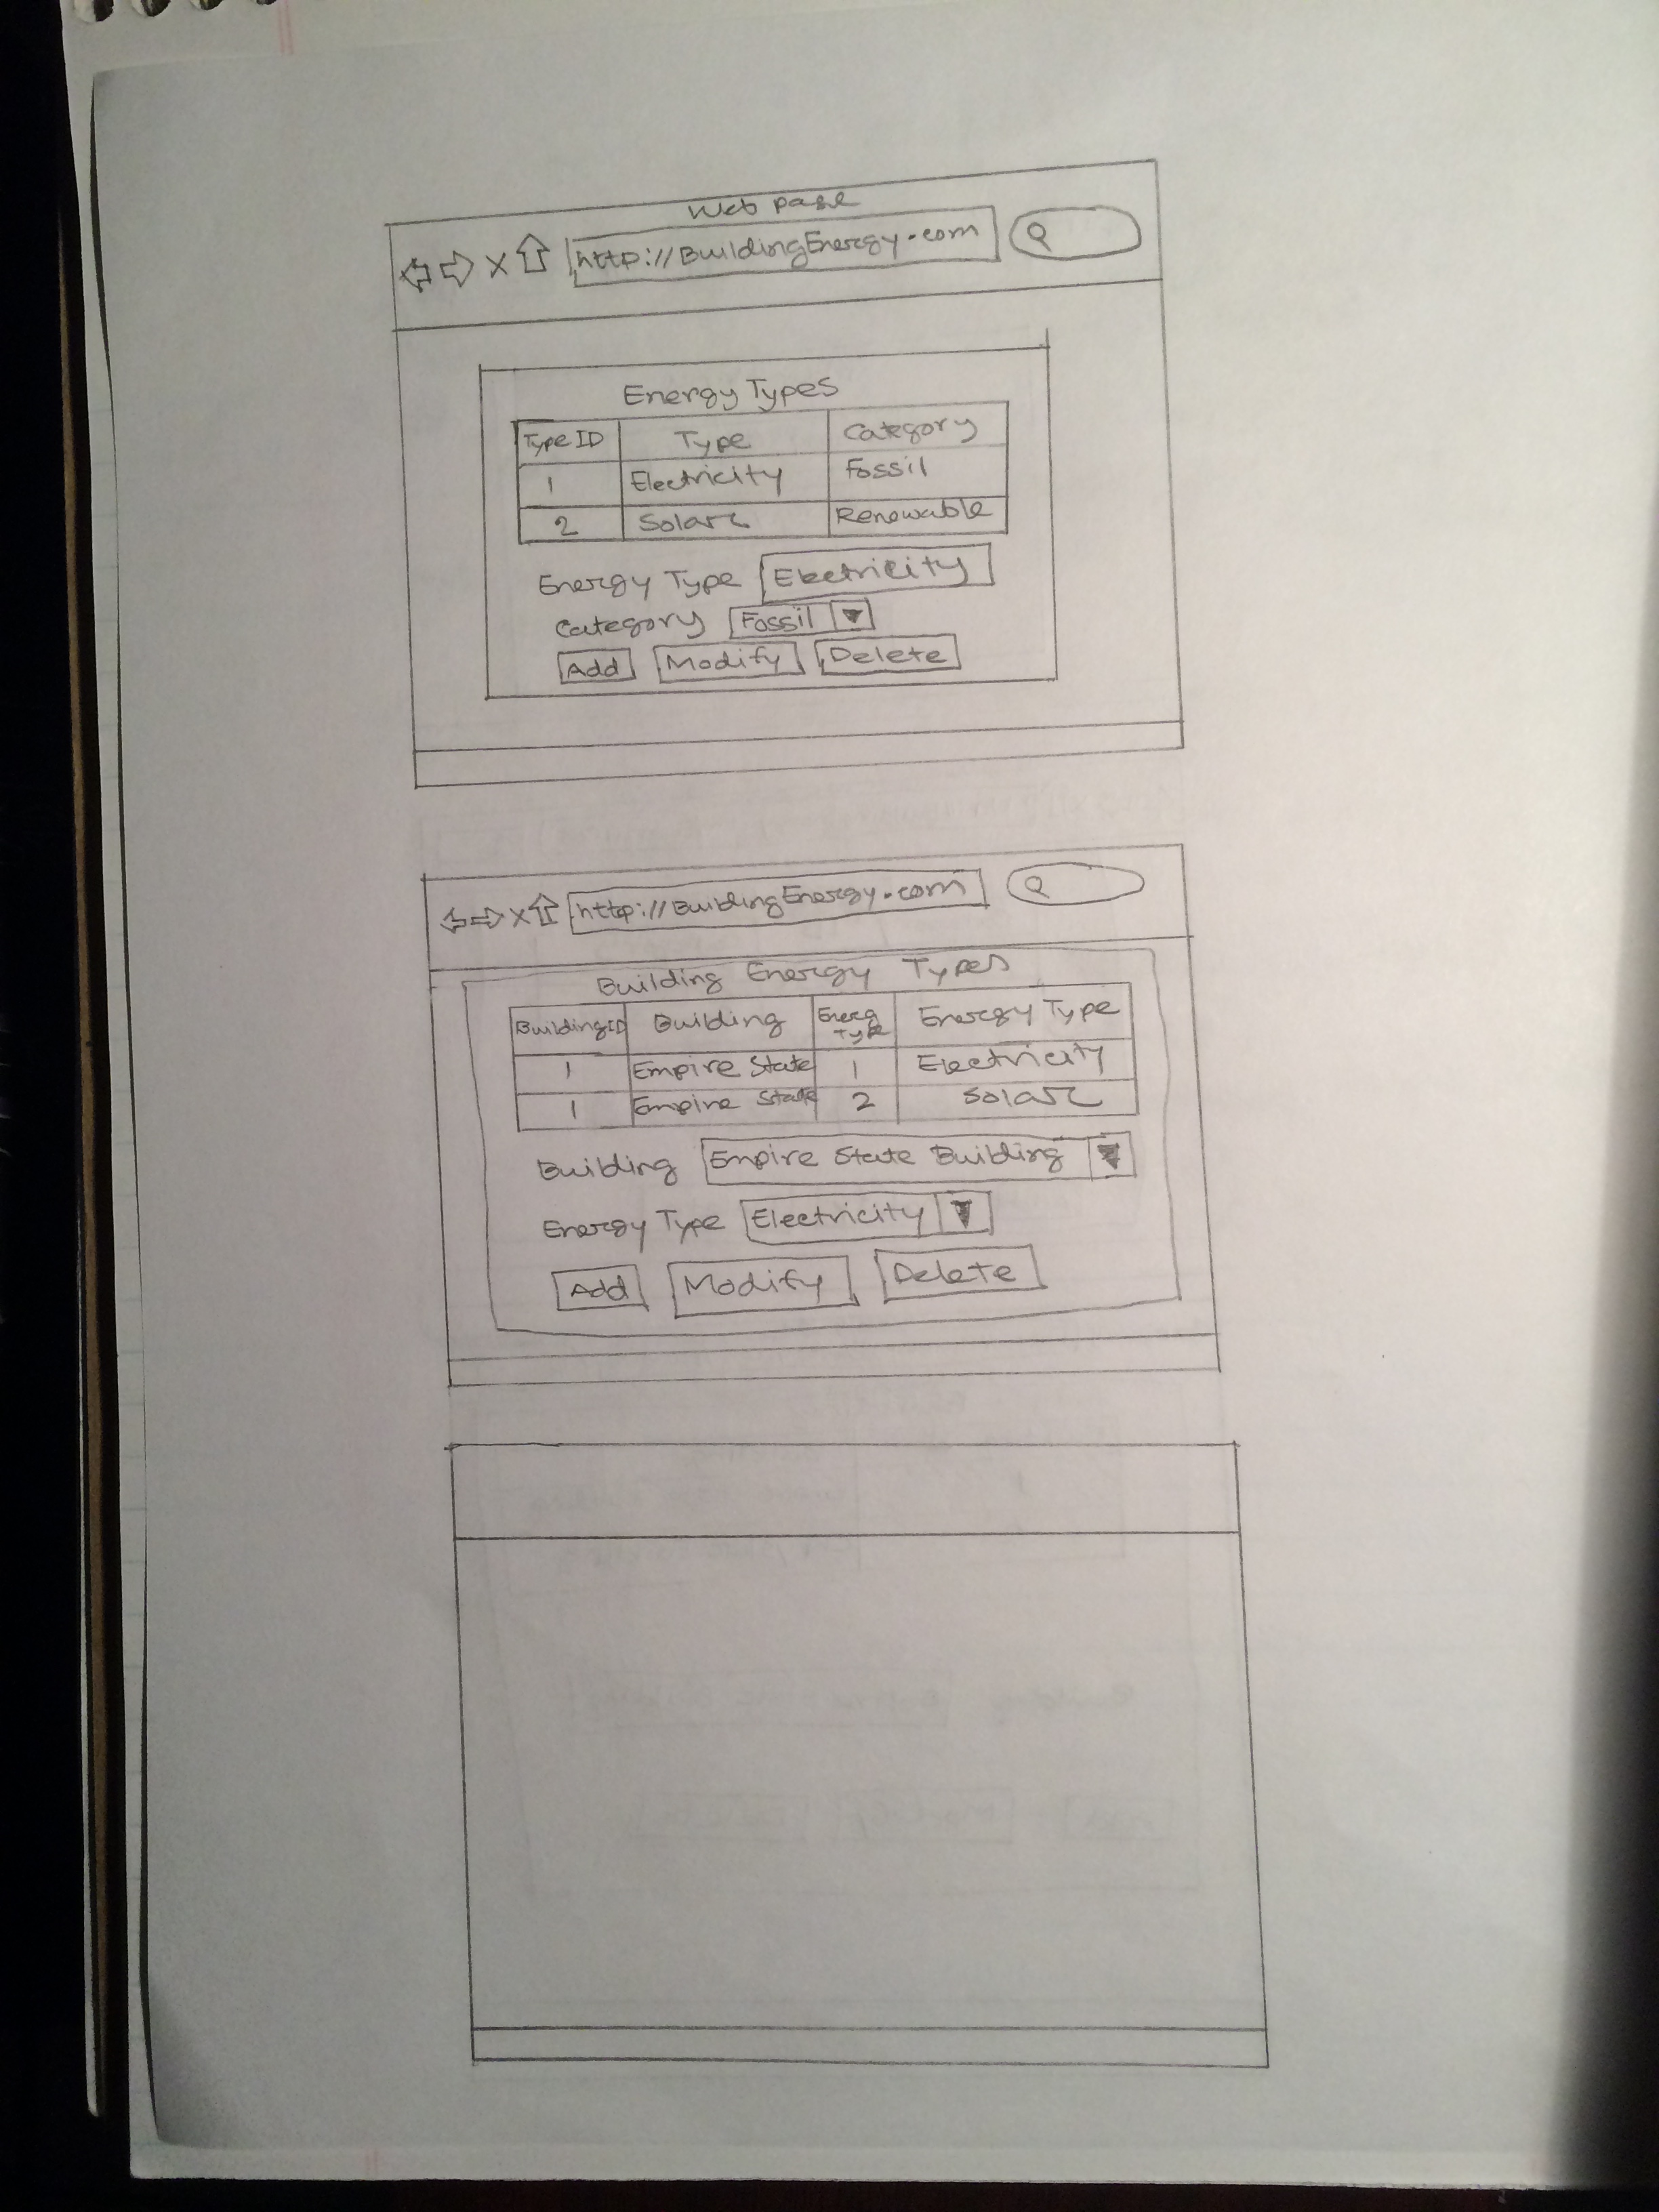 Web page
http://BuildingEnergy.com
Energy Types
Type ID Type Category
1 Electricity Fossil
2 Solar Renewable
Energy Type Electricity
Category Fossil
Add Modify Delete
http://BuildingEnergy.com
Building Energy Types
BuildingID Building Energ Type Energy Type
1 Empire State 1 Electricity
1 Empire State 2 Solar
Building Empire State Building
Energy Type Electricity
Add Modify Delete